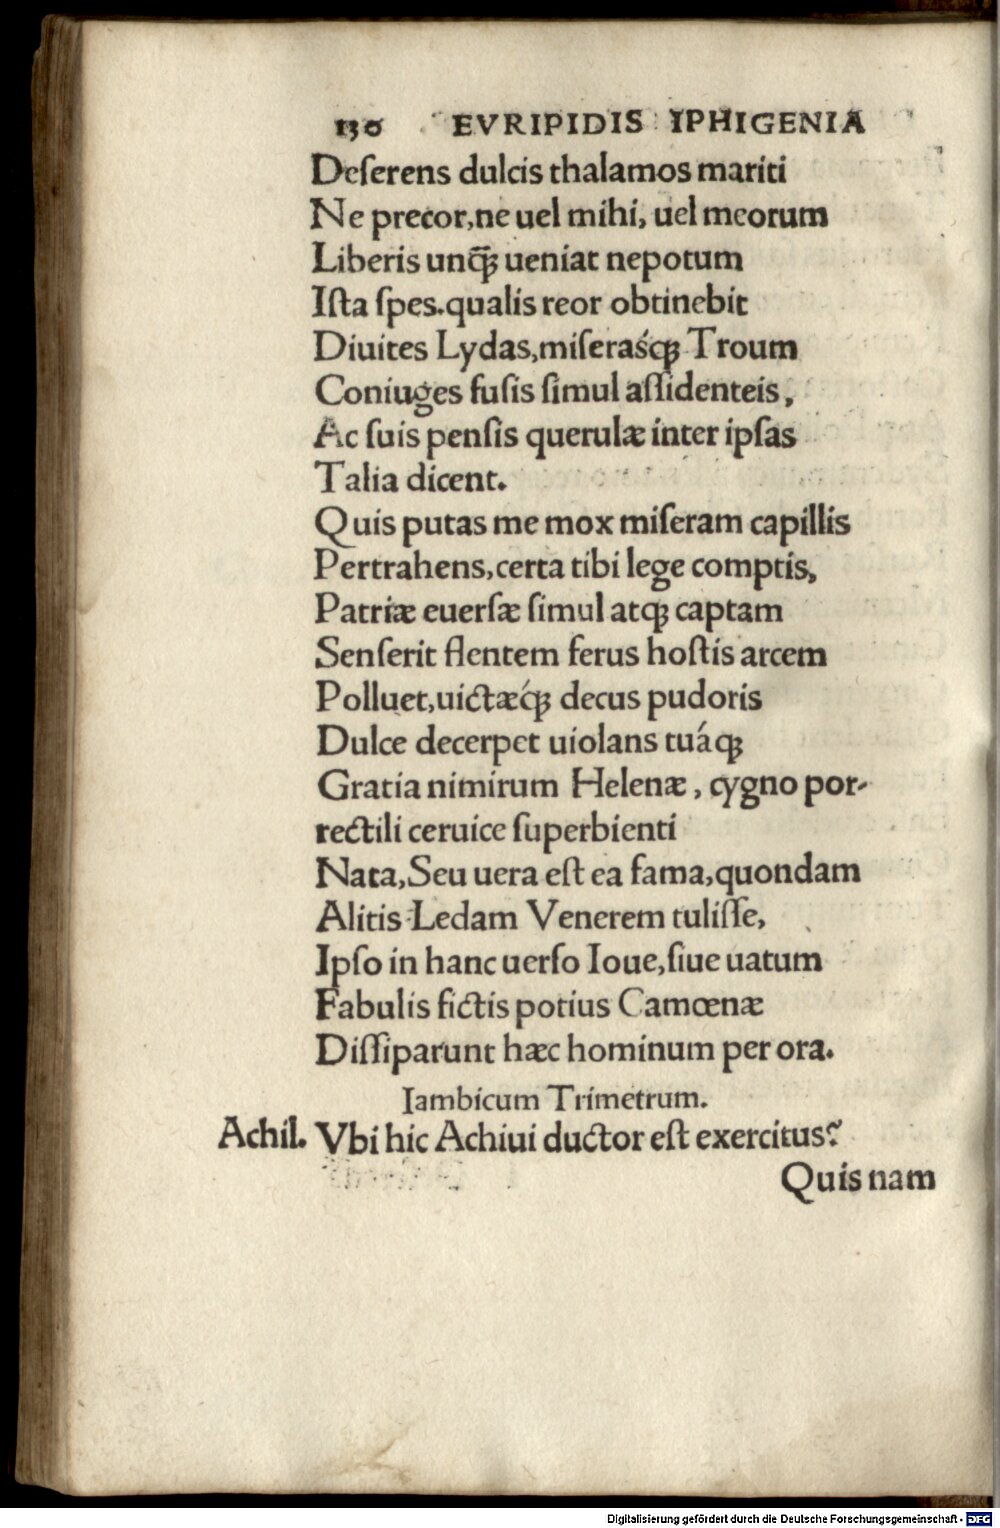 130 EVRIPIDIS IPHIGENIA
Deſerens dulcis thalamos mariti
Ne precor,ne uel mihi, uel meorum
Liberis unq̄ꝫ ueniat nepotum
Iſta ſpes.qualis reor obtinebit
Diuites Lydas,miſeraśqꝫ Troum
Coniuges fuſis ſimul aſſidenteis,
Ac ſuis penſis querulæ inter ipſas
Talia dicent.
Quis putas me mox miſeram capillis
Pertrahens,certa tibi lege comptis,
Patriæ euerſæ ſimul atqꝫ captam
Senſerit flentem ferus hoſtis arcem
Polluet,uictæq́ꝫ decus pudoris
Dulce decerpet uiolans tuáqꝫ
Gratia nimirum Helenæ, cygno por-
rectili ceruice ſuperbienti
Nata,Seu uera eſt ea fama,quondam
Alitis Ledam Venerem tuliſſe,
Ipſo in hanc uerſo Ioue,ſiue uatum
Fabulis fictis potius Camœnæ
Diſſiparunt hæc hominum per ora.
Iambicum Trimetrum.
Achil. Vbi hic Achiui ductor eſt exercitus?
Quis nam
Digitalisierung gefördert durch die Deutsche Forschungsgemeinschaft - DFG